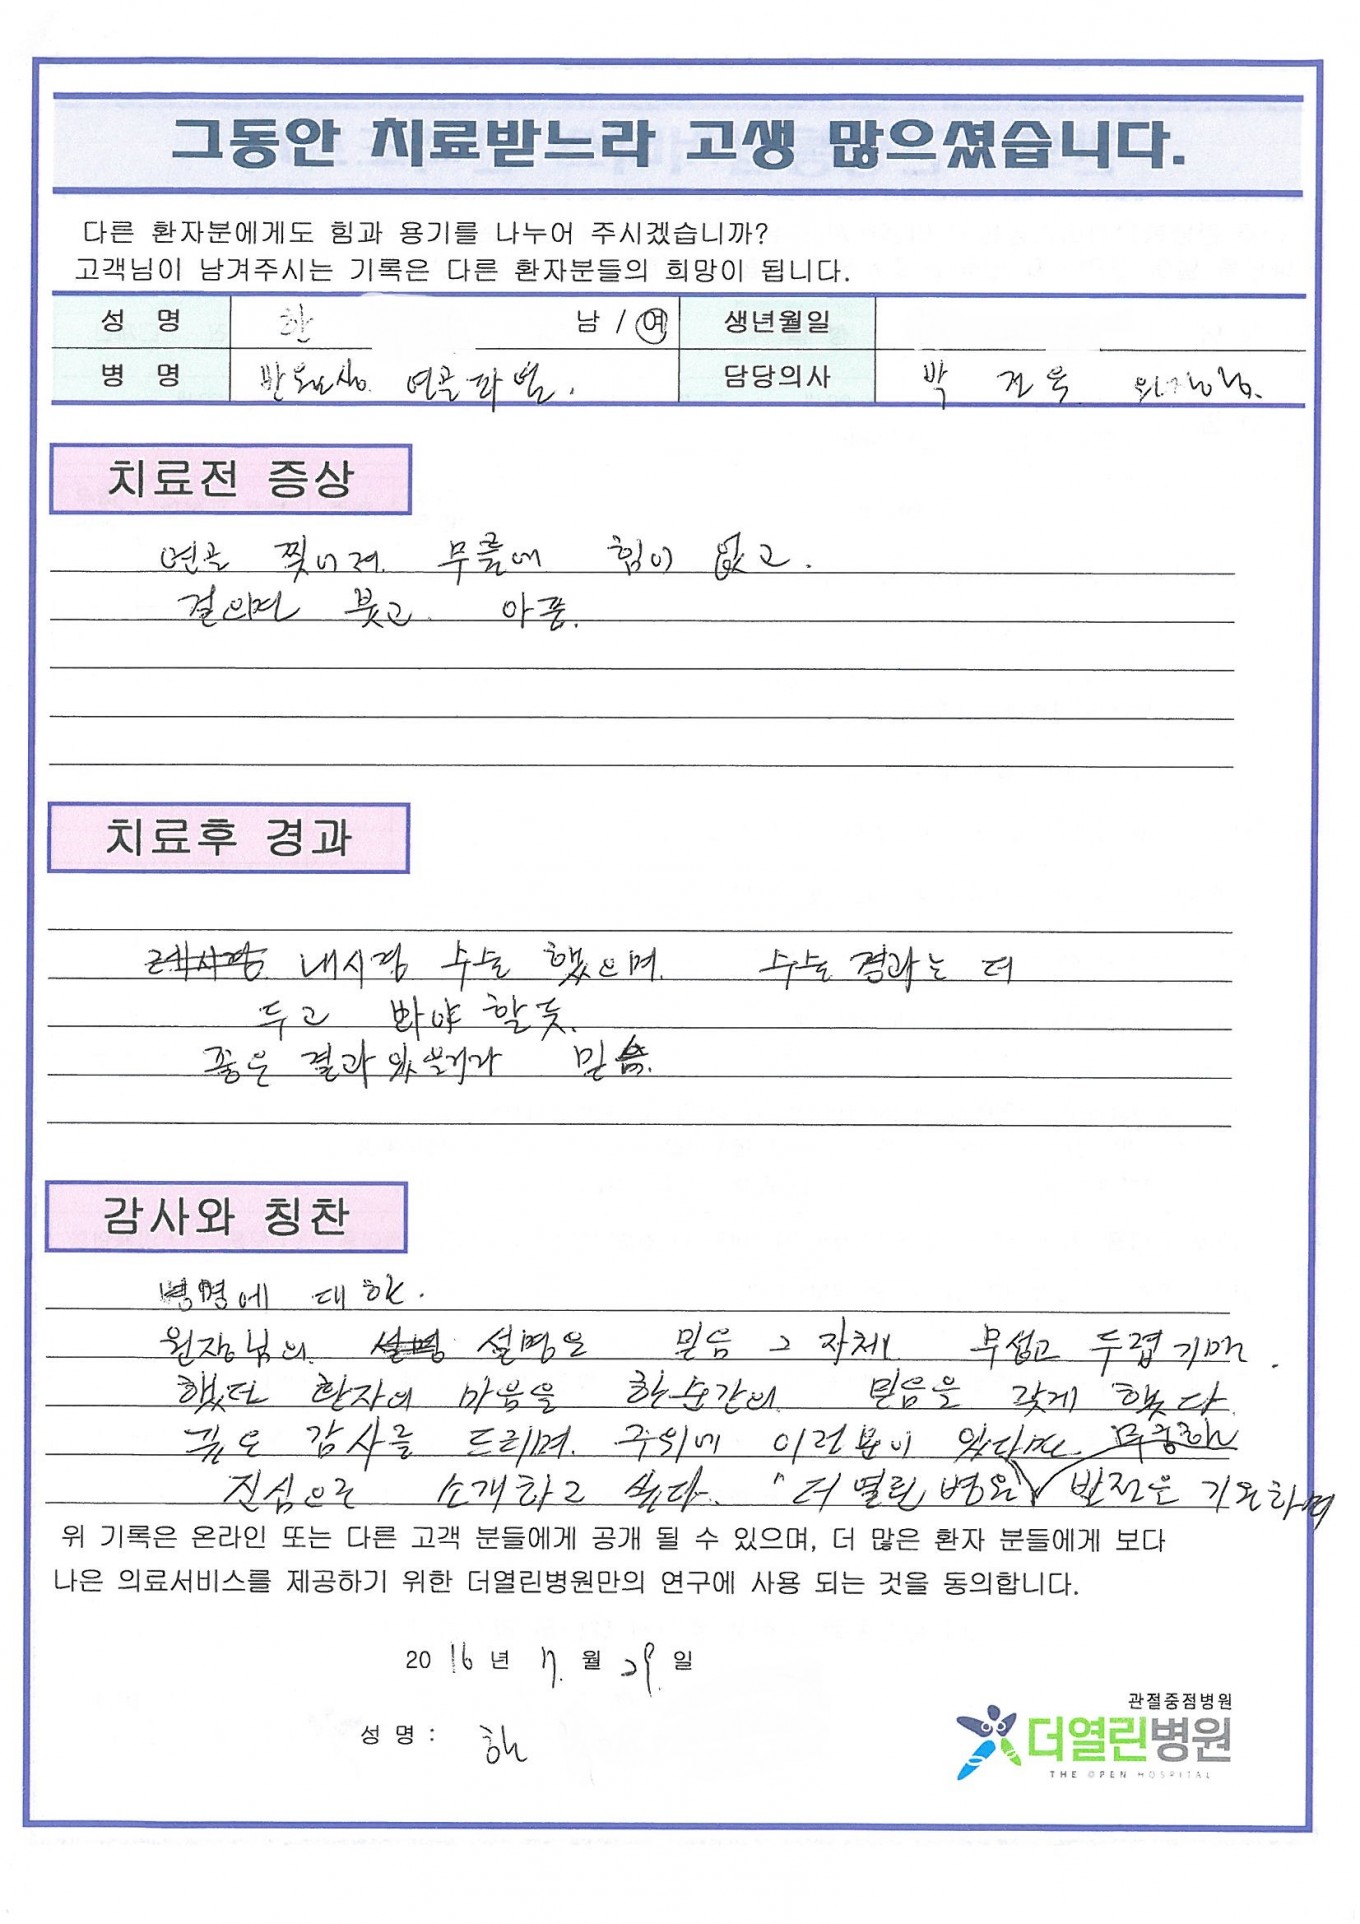 그동안 치료받느라 고생 많으셨습니다.
다른 환자분에게도 힘과 용기를 나누어 주시겠습니까?
고객님이 남겨주시는 기록은 다른 환자분들의 희망이 됩니다.
성 명 한 남 / 여 생년월일
병 명 연골파열. 담당의사 박 원장님.
치료전 증상
연골 찢어져 무릎에 힘이 없고.
걸으면 붓고. 아픔.
치료후 경과
내시경 수술 했으며. 수술 경과는 더
두고 봐야 할듯.
좋은 결과 있을거라 믿음.
감사와 칭찬
병명에 대한.
원장님의 설명 설명은 믿음 그 자체 무섭고 두렵기만.
했던 환자의 마음을 한순간의 믿음을 갖게 했다.
깊은 감사를 드리며. 주위에 이런분이 있다면
진심으로 소개하고 싶다. "더 열린 병원" 발전을 기원하며
위 기록은 온라인 또는 다른 고객 분들에게 공개 될 수 있으며, 더 많은 환자 분들에게 보다
나은 의료서비스를 제공하기 위한 더열린병원만의 연구에 사용 되는 것을 동의합니다.
2016 년 7. 월 29. 일
성 명 : 한
관절중점병원
더열린병원
THE OPEN HOSPITAL